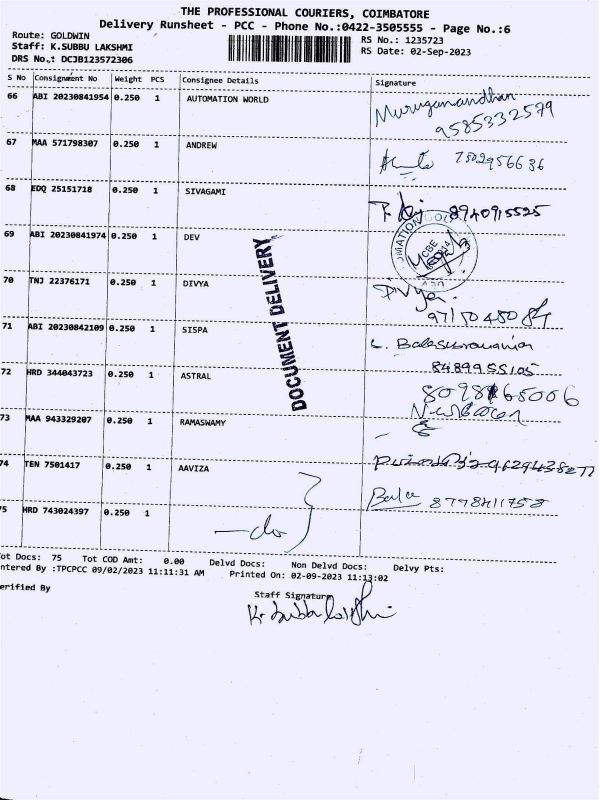 THE PROFESSIONAL COURIERS, COIMBATORE
Delivery Runsheet - PCC - Phone No.:0422-3505555 - Page No.:6
Route: GOLDWIN
Staff: K.SUBBU LAKSHMI
DRS No.: DCJB123572306
RS No.: 1235723
RS Date: 02-Sep-2023
S No Consignment No Weight PCS Consignee Details Signature
66 ABI 20230841954 0.250 1 AUTOMATION WORLD Muruganandhan
9585332579
67 MAA 571798307 0.250 1 ANDREW 7502956636
68 EDQ 25151718 0.250 1 SIVAGAMI 8940915525
69 ABI 20230841974 0.250 1 DEV
70 TNJ 22376171 0.250 1 DIVYA Divya.
9715045084
71 ABI 20230842109 0.250 1 SISPA L. Balasubramanian
8489955105
72 HRD 344043723 0.250 1 ASTRAL
73 MAA 943329207 0.250 1 RAMASWAMY
74 TEN 7501417 0.250 1 AAVIZA 9629438277
Bala 8778411758
75 HRD 743024397 0.250 1 -do
DOCUMENT DELIVERY
Tot Docs: 75 Tot COD Amt: 0.00 Delvd Docs: Non Delvd Docs: Delvy Pts:
ntered By :TPCPCC 09/02/2023 11:11:31 AM Printed On: 02-09-2023 11:13:02
erified By Staff Signature
K. Subbulakshmi